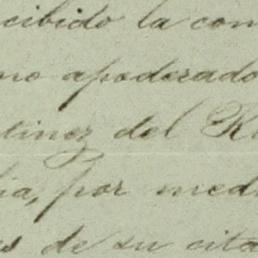 cibido la com
mo apoderado
tinez del R
ia, por med
s de su cita